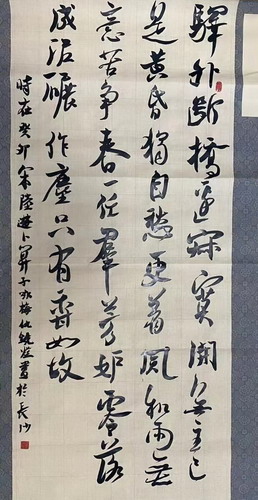 驛外斷橋邊寂寞開無主已
是黄昏獨自愁更著風和雨無
意苦争春一任羣芳妒零落
成泥碾作塵只有香如故
時在癸卯宋陸遊卜算子咏梅書於長沙